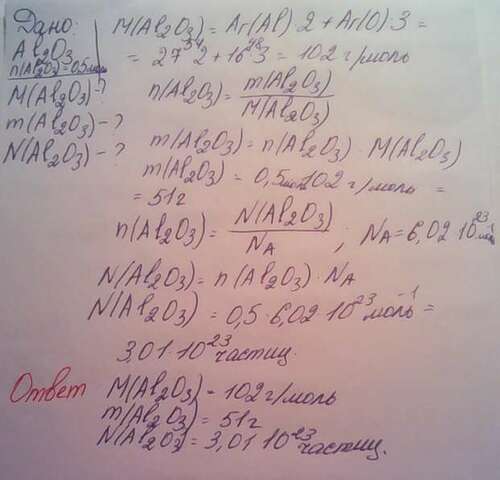 Дано:
Al₂O₃
n(Al₂O₃)=0,5 моль
M(Al₂O₃)-?
m(Al₂O₃)-?
N(Al₂O₃)-?
M(Al₂O₃) = Ar(Al)·2 + Ar(O)·3 =
= 27·2 54 + 16·3 48 = 102 г/моль
n(Al₂O₃) = m(Al₂O₃) / M(Al₂O₃)
m(Al₂O₃) = n(Al₂O₃) · M(Al₂O₃)
m(Al₂O₃) = 0,5 моль·102 г/моль =
= 51г
n(Al₂O₃) = N(Al₂O₃) / N_A ; N_A = 6,02·10²³ моль⁻¹
N(Al₂O₃) = n(Al₂O₃) · N_A
N(Al₂O₃) = 0,5·6,02·10²³ моль⁻¹ =
3,01·10²³ частиц.
Ответ M(Al₂O₃) = 102 г/моль
m(Al₂O₃) = 51г
N(Al₂O₃) = 3,01·10²³ частиц.